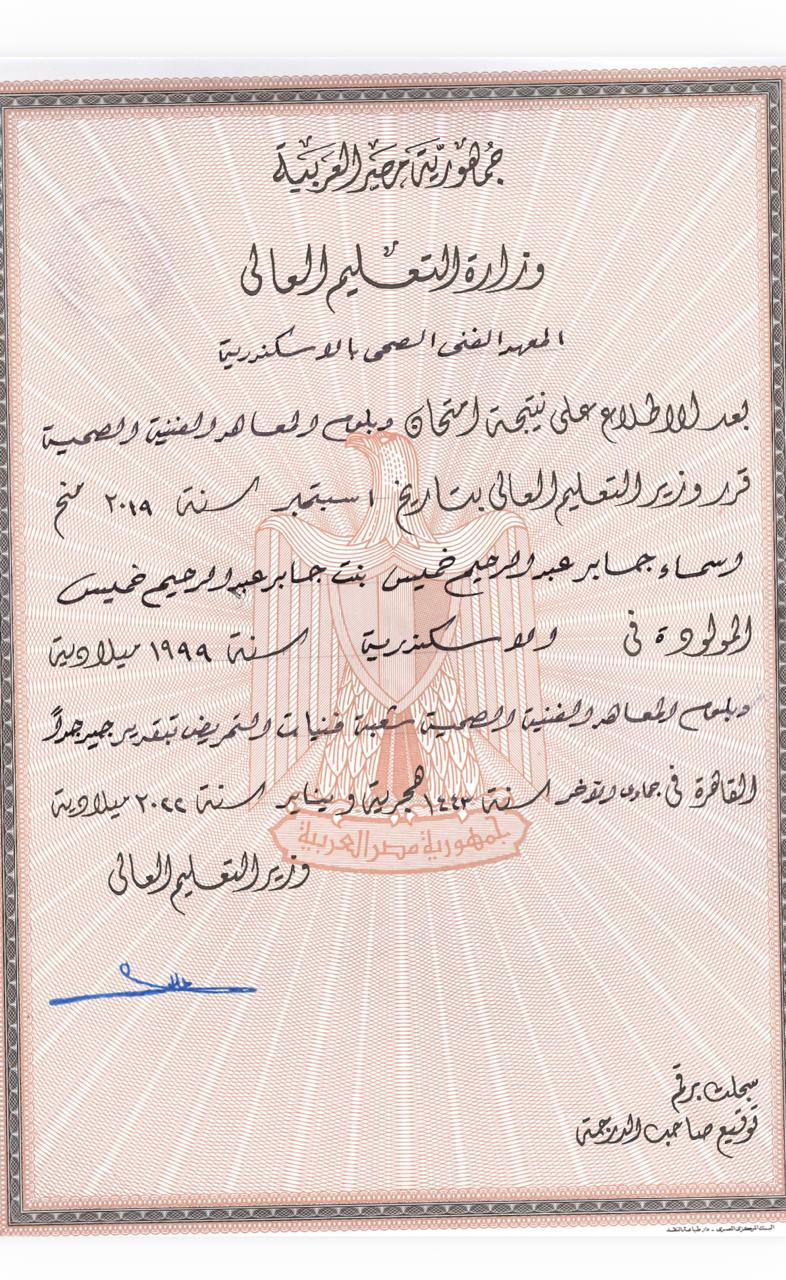 جمهورية مصر العربية
وزارة التعليم العالى
المعهد الفنى الصحى بالاسكندرية
بعد الاطلاع على نتيجة امتحان دبلوم المعاهد الفنية الصحية
قرر وزير التعليم العالى بتاريخ ١ سبتمبر سنة ٢٠١٩ منح
اسماء جابر عبد الرحيم خميس بنت جابر عبد الرحيم خميس
المولودة فى الاسكندرية سنة ١٩٩٩ ميلادية
دبلوم المعاهد الفنية الصحية شعبة فنيات التمريض بتقدير جيد جداً
القاهرة فى جمادى الآخر سنة ١٤٤٣ هجرية و يناير سنة ٢٠٢٢ ميلادية
جمهورية مصر العربية
وزير التعليم العالى
سجلت برقم
توقيع صاحب الدرجة
البنك المركزى المصرى - دار طباعة النقد